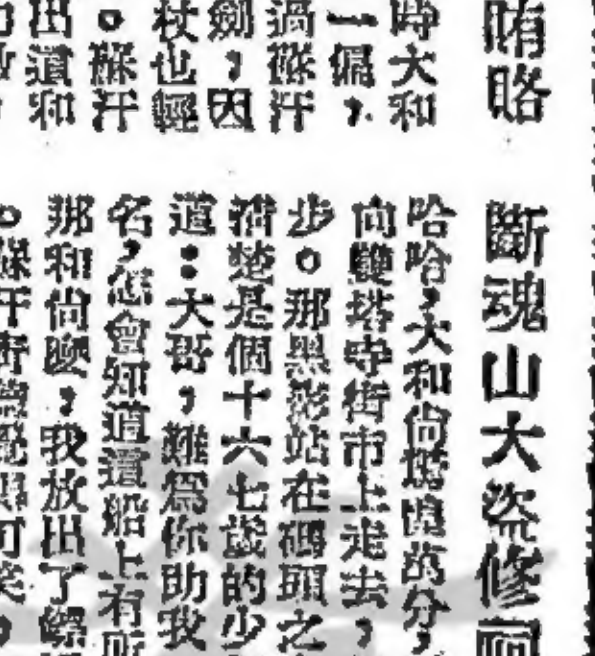 賄賂
時大和
一偏，
過蘇汗
劍，因
杖也輕
。蘇汗
出道和
斷魂山大盜修
哈哈，大和尚惶萬分，
向雙塔寺街市上走去，
步。那黑影站在碼頭之
清楚是個十六七歲的少
道：大哥，難為你助我
名，怎會知道這船上有
那和尚麼，我放出了
。蘇汗